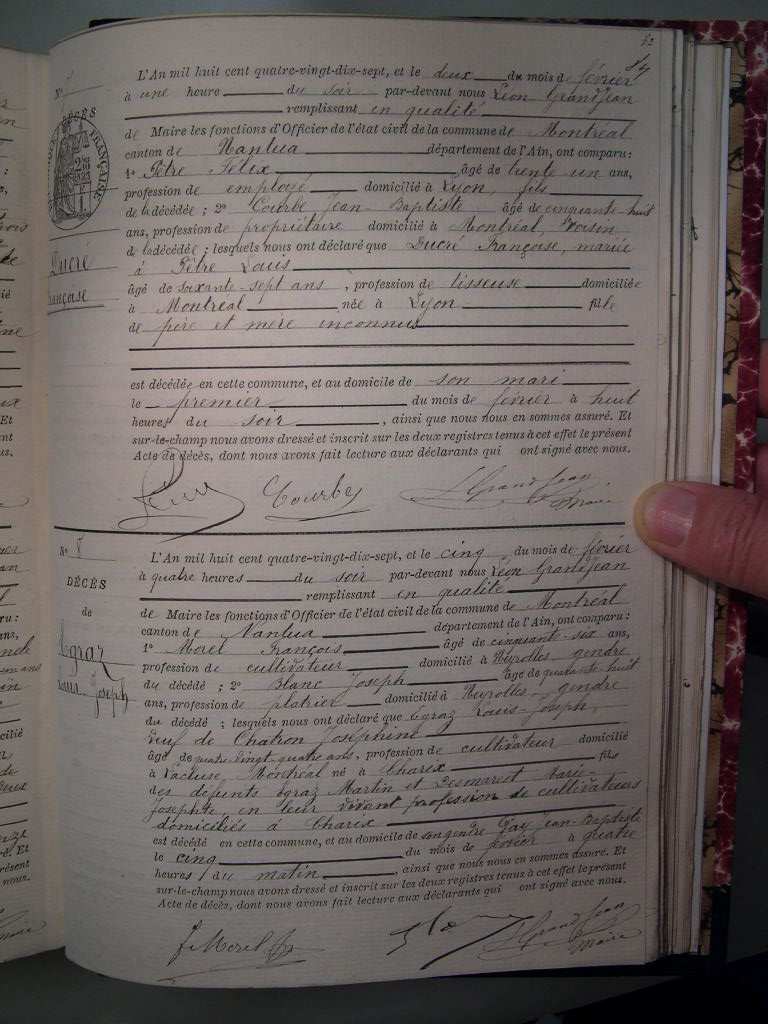 L'An mil huit cent quatre-vingt-dix-sept, et le deux du mois de février
à une heure du soir par-devant nous Léon Grandjean
remplissant en qualité
de Maire les fonctions d'Officier de l'état civil de la commune de Montréal
canton de Nantua département de l'Ain, ont comparu:
1° Pêtre Félix, âgé de trente un ans,
profession de employé domicilié à Lyon, fils
de la décédée; 2° Courbe Jean-Baptiste âgé de cinquante-huit
ans, profession de propriétaire domicilié à Montréal, Voisin
de la décédée; lesquels nous ont déclaré que Ducré Françoise, mariée
à Pêtre Louis
âgé de soixante-sept ans, profession de tisseuse domiciliée
à Montréal née à Lyon fille
de père et mère inconnus
est décédée en cette commune, et au domicile de son mari
le premier du mois de février à huit
heures du soir, ainsi que nous nous en sommes assuré. Et
sur-le-champ nous avons dressé et inscrit sur les deux registres tenus à cet effet le présent
Acte de décès, dont nous avons fait lecture aux déclarants qui ont signé avec nous.
Courbe LGrandJean
Maire
N°
DÉCÈS
Ducré
Françoise
N° 8
DÉCÈS
de
Egraz
Louis Joseph
L'An mil huit cent quatre-vingt-dix-sept, et le cinq du mois de février
à quatre heures du soir par-devant nous Léon Grandjean
remplissant en qualité
de Maire les fonctions d'Officier de l'état civil de la commune de Montréal
canton de Nantua département de l'Ain, ont comparu:
1° Morel François âgé de cinquante-six ans,
profession de cultivateur domicilié à Neyrolles gendre
du décédé; 2° Blanc Joseph âgé de quarante huit
ans, profession de platrier domicilié à Neyrolles gendre
du décédé; lesquels nous ont déclaré que Egraz Louis-Joseph,
veuf de Chatron Josephine
âgé de quatre-vingt-quatre ans, profession de cultivateur domicilié
à Lacluse, Montréal né à Charix fils
des défunts Egraz Martin et Desmarest Marie-
Josephte, en leur vivant profession de cultivateurs
domiciliés à Charix
est décédé en cette commune, et au domicile de son gendre Jean-Baptiste
le cinq du mois de février à quatre
heures du matin, ainsi que nous nous en sommes assuré. Et
sur-le-champ nous avons dressé et inscrit sur les deux registres tenus à cet effet le présent
Acte de décès, dont nous avons fait lecture aux déclarants qui ont signé avec nous.
f Morel LGrandJean
Maire